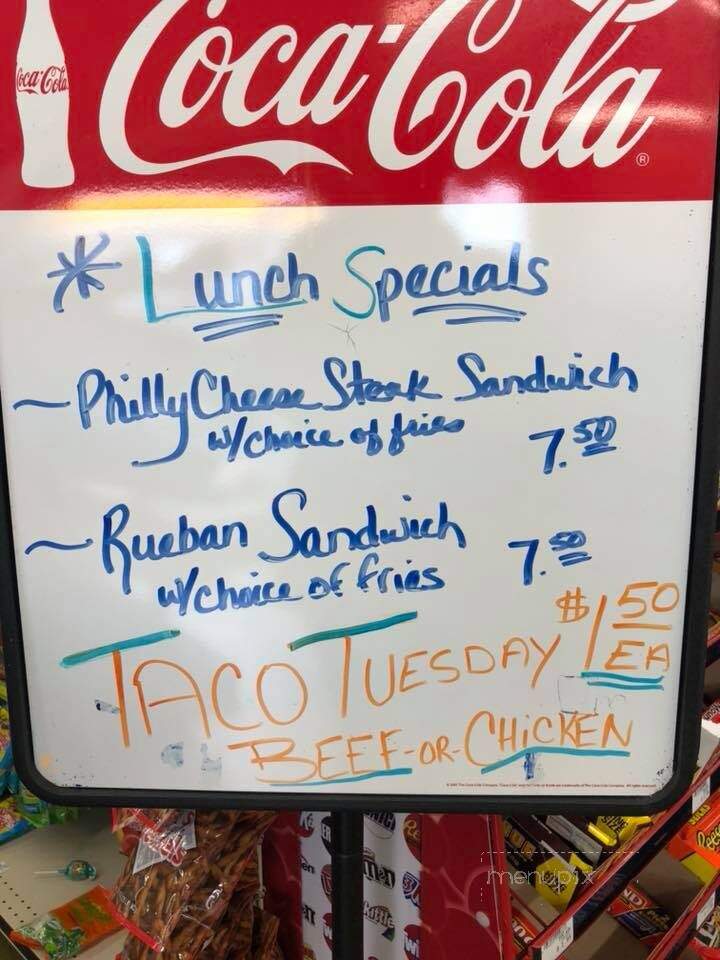 Coca-Cola
Coca-Cola ®
* Lunch Specials
~ Philly Cheese Steak Sandwich
w/choice of fries 7.50
~ Rueban Sandwich
w/choice of fries 7.50
TACO TUESDAY $1.50 EA
BEEF-OR-CHICKEN
menupix